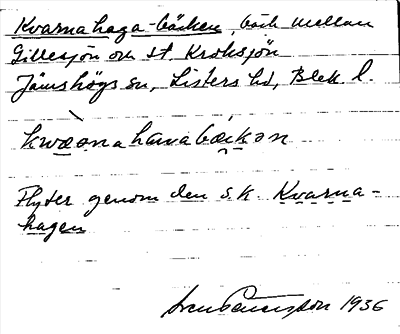 Kvarnahaga-bäcken, bäck mellan
Gillesjön och St. Kroksjön
Jämshögs sn, Listers hd, Blek. l.
kwæ̀ənahavabækən
Flyter genom den s.k. Kvarna-
hagen
1936